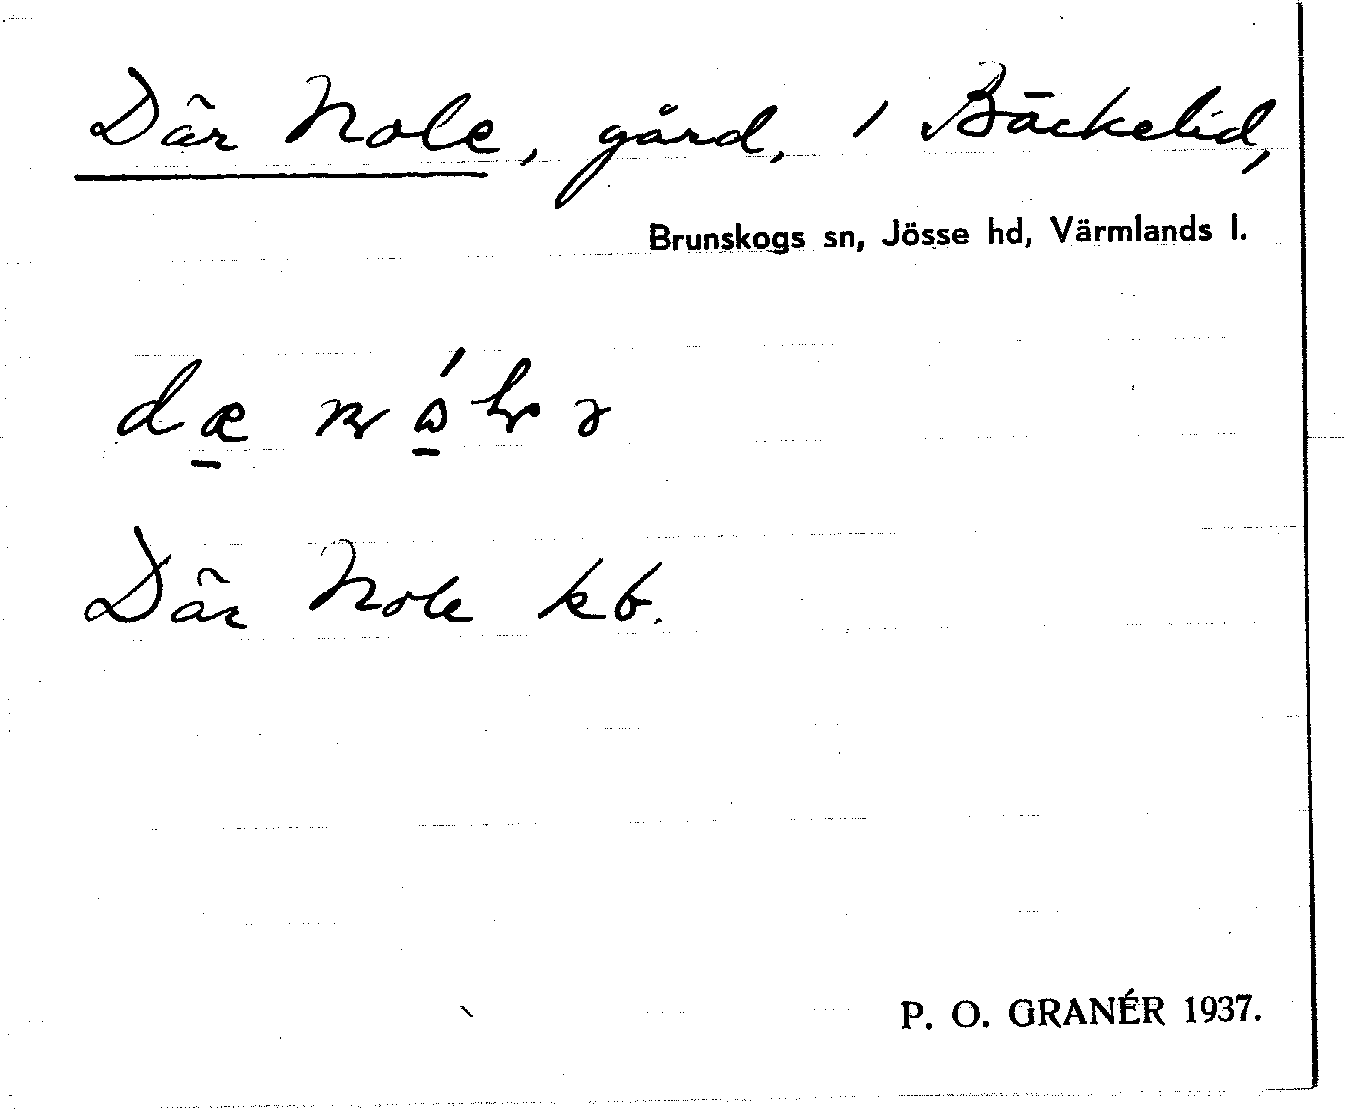 Där Nole, gård, i Bäckelid,
Brunskogs sn, Jösse hd, Värmlands l.
dæ
Där Nole kb.
P. O. GRANÉR 1937.